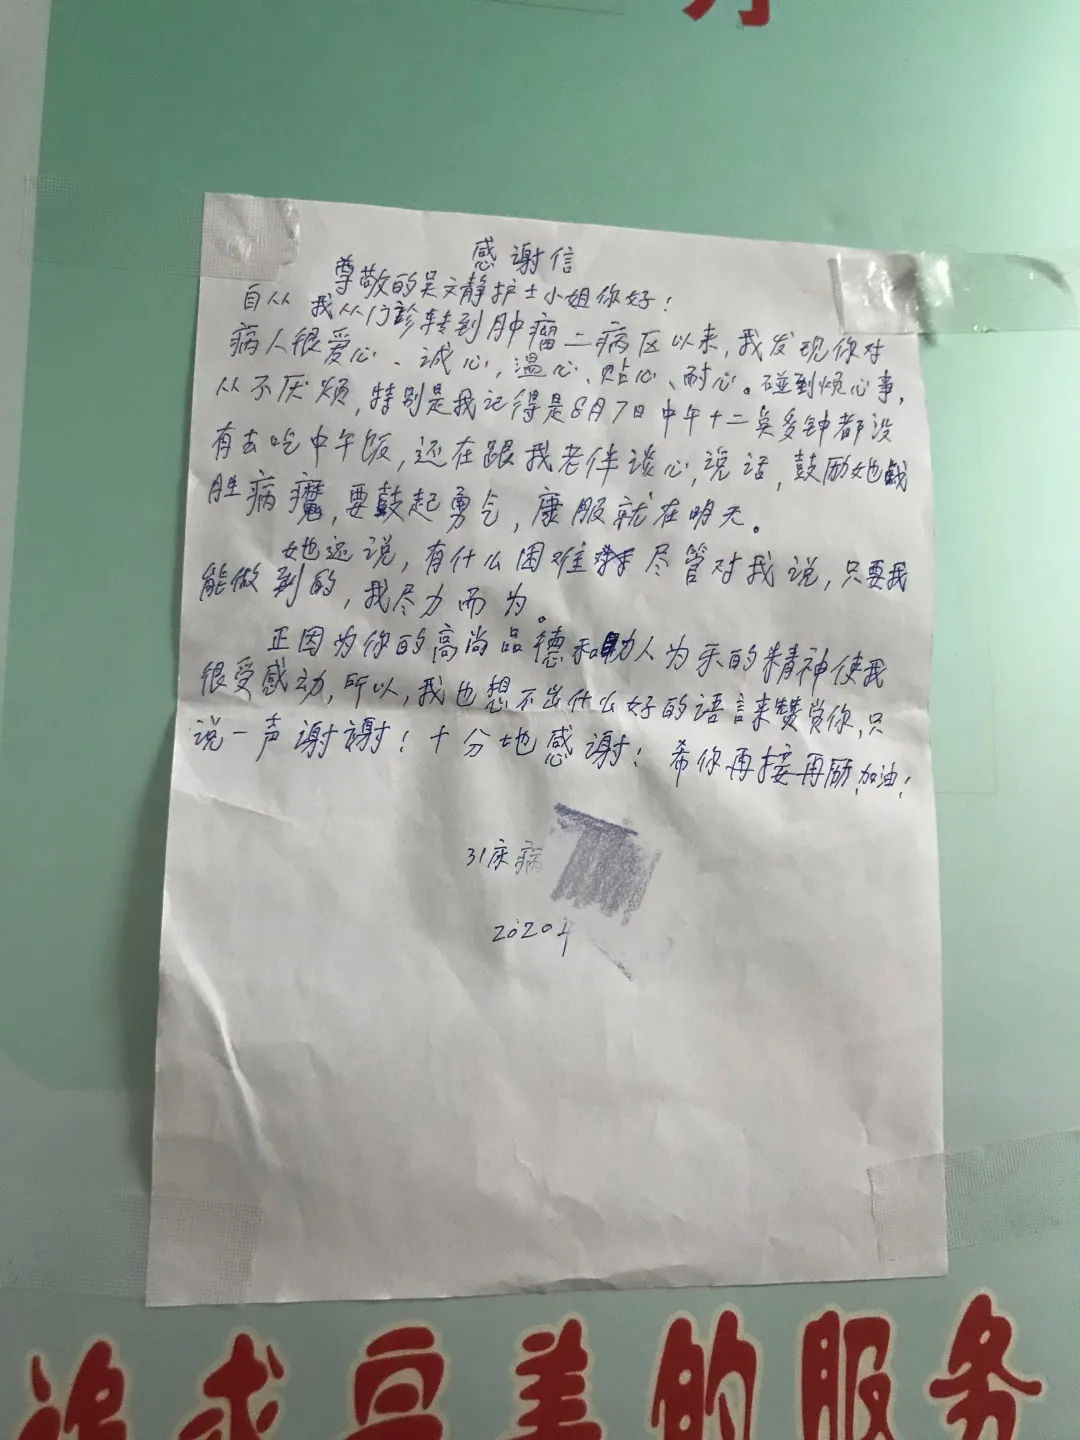 感谢信
尊敬的吴文静护士小姐你好!
自从我从门诊转到肿瘤二病区以来,我发现你对
病人很爱心、诚心,温心、贴心、耐心。碰到烦心事,
从不厌烦,特别是我记得是8月7日中午十二点多钟都没
有去吃中午饭,还在跟我老伴谈心,说话,鼓励她战
胜病魔,要鼓起勇气,康服就在明天。
她还说,有什么困难 尽管对我说,只要我
能做到的,我尽力而为。
正因为你的高尚品德和助人为乐的精神使我
很受感动,所以,我也想不出什么好的语言来赞赏你,只
说一声谢谢!十分地感谢!希你再接再励,加油!
31床病
2020年
的服务